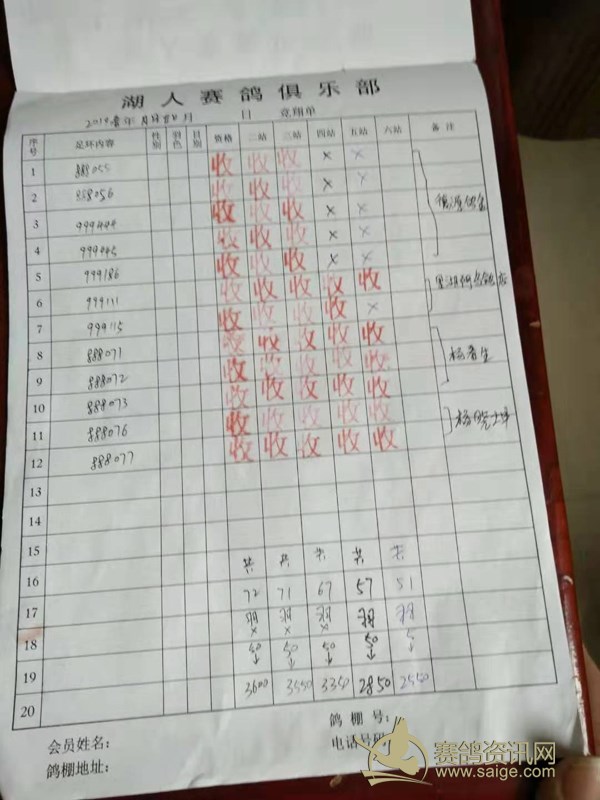 湖人赛鸽俱乐部
2019 年 月 日 竞翔单
序号 足环内容 性别 羽色 目别 资格 二站 三站 四站 五站 六站 备注
1 888055 收 收 收 × ×
2 888056 收 收 收 × ×
3 999444 收 收 收 × ×
4 999445 收 收 收 × ×
5 999186 收 收 收 × ×
6 999111 收 收 收 收 收
7 999115 收 收 收 收 ×
8 888071 收 收 收 收 收
9 888072 收 收 收 收 收
10 888073 收 收 收 收 收
11 888076 收 收 收 收 收
12 888077 收 收 收 收 收
13
14
15 共 共 共 共 共
16 72 71 67 57 51
17 羽 羽 羽 羽 羽
× × ×
18 50 50 50 50 5
19 3600 3550 3350 2850 2550
20
鸽棚号:
会员姓名: 电话号码:
鸽棚地址:
赛鸽资讯网
www.saige.com